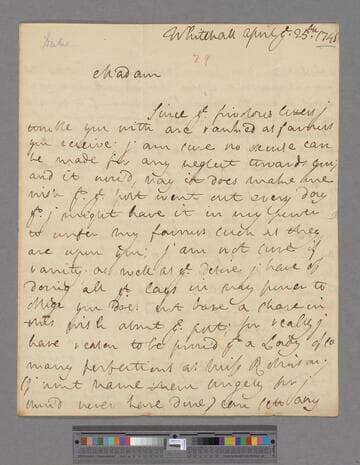 Whitehall April ye. 25th. 174
29
Madam
Since ye frivolous letters j
trouble you with are ranked as favours
you receive: j am sure no excuse can
be made for any neglect towards you,
and it wou'd, nay it does make me
wish yt ye post went out every day
yt j might have it in my power
to confer my favours such as they
are upon you; j am not sure if
vanity as well as ye desire j have of
doing all yt lays in my power to
oblige you does not bare a share in
this wish about ye post: for really j
have reason to be proud yt a Lady of so
many perfections as Miss Robinson
(j wont name them singely for j
shou'd never have done) can set any